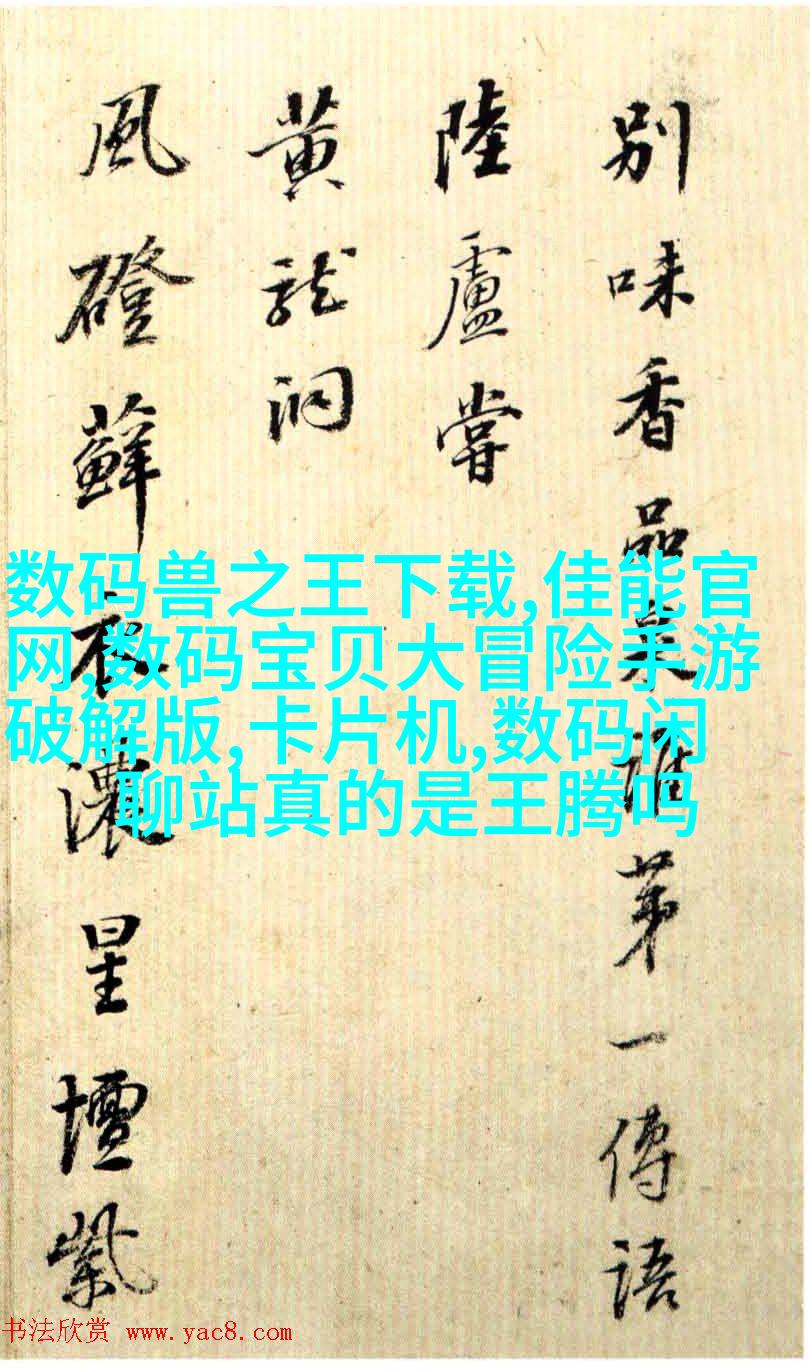 別味香品泉誰第一傳語
陸盧嘗
黄龍洞
風磴蘚衣濃星壇紫
数码兽之王下载,佳能官
网,数码宝贝大冒险手游
破解版,卡片机,数码闲
聊站真的是王腾吗
书法欣赏 www.yac8.com